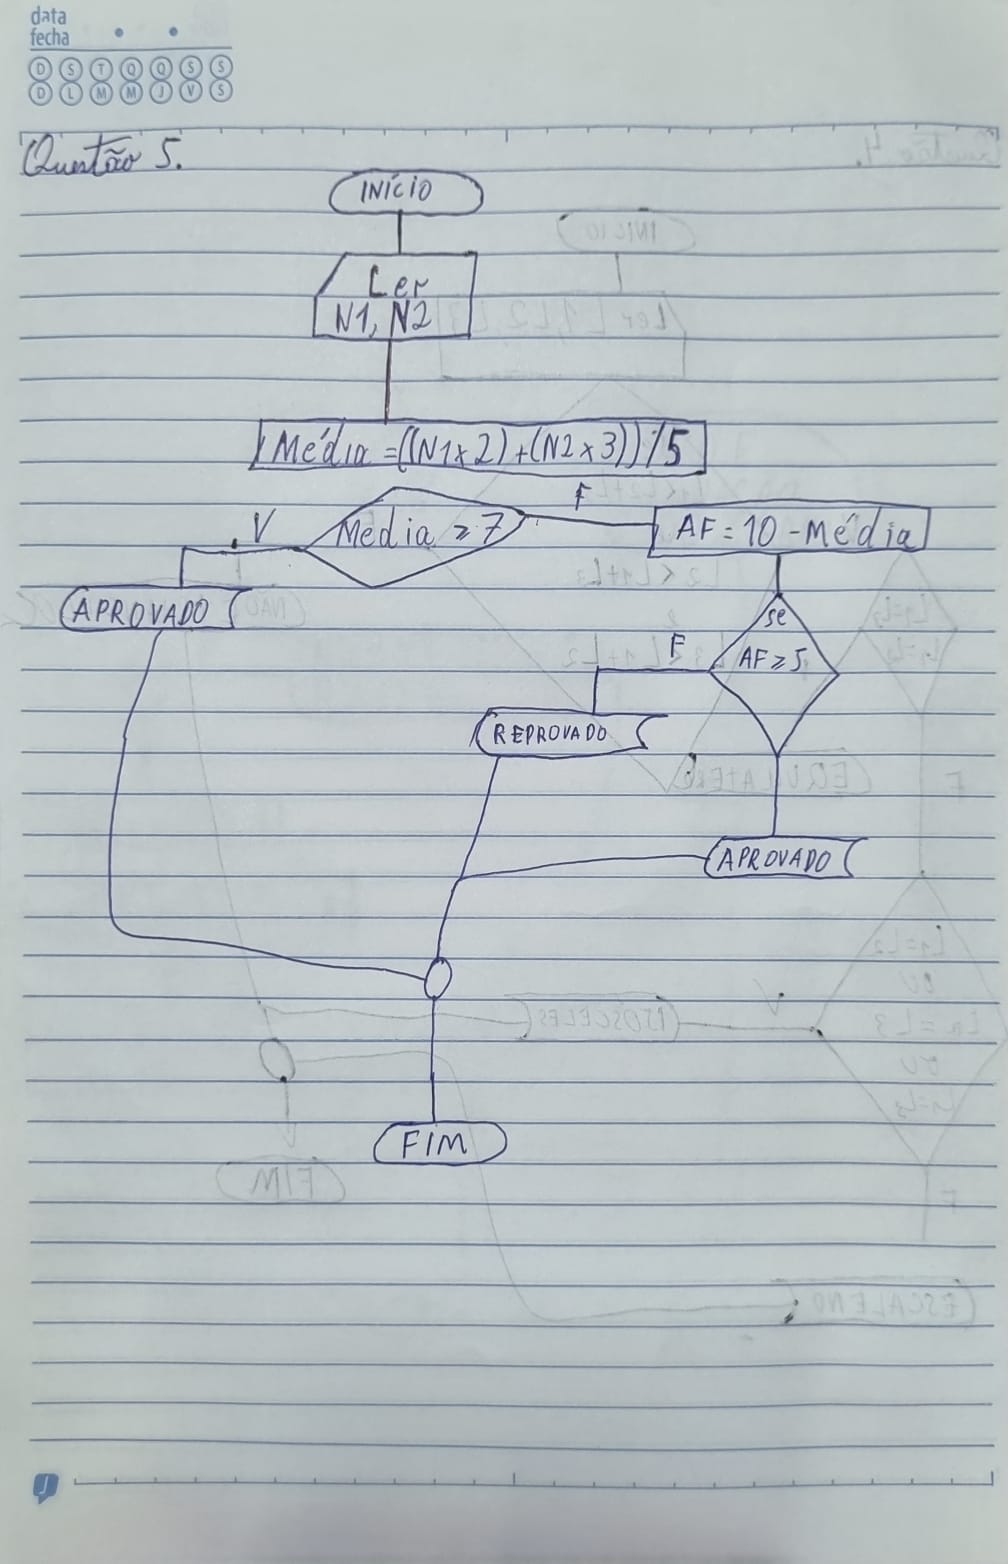 data
fecha
D S T Q Q S S
D L M M J V S
Questão 5.
INÍCIO
Ler
N1, N2
Média =((N1x2)+(N2x3))/5
V
Média ≥ 7
F
AF = 10 - Média
APROVADO
se
AF ≥ 5
F
REPROVADO
APROVADO
FIM